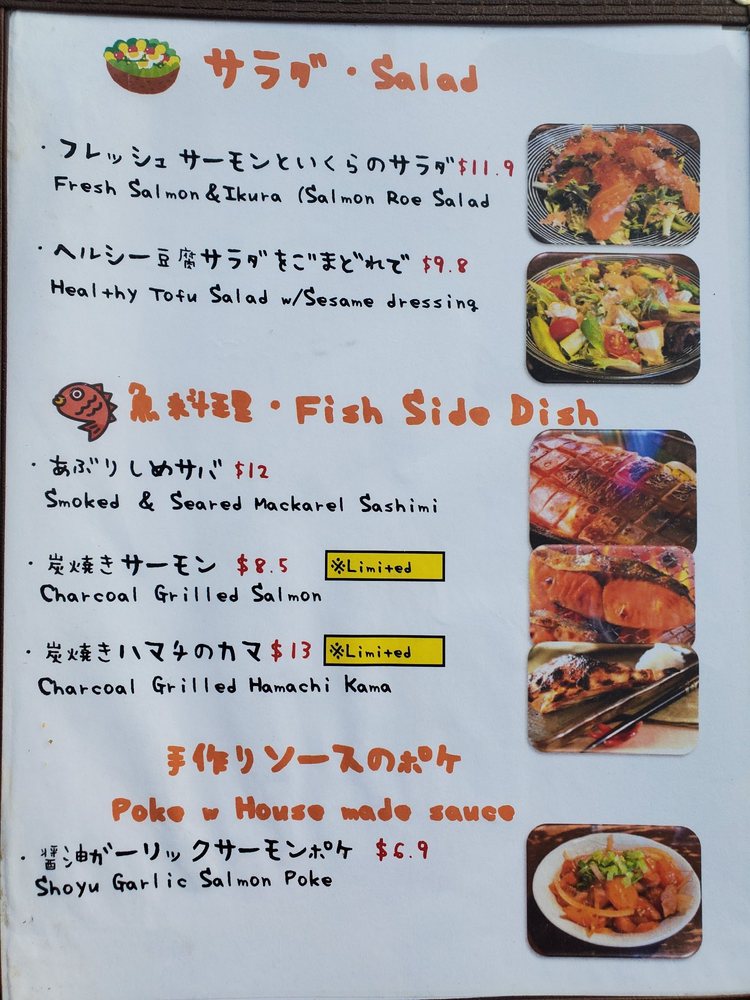 サラダ・Salad
・フレッシュサーモンといくらのサラダ $11.9
Fresh Salmon & Ikura (Salmon Roe Salad
・ヘルシー豆腐サラダをごまどれで $9.8
Healthy Tofu Salad w/Sesame dressing
魚料理・Fish Side Dish
・あぶりしめサバ $12
Smoked & Seared Mackarel Sashimi
・炭焼きサーモン $8.5 ※Limited
Charcoal Grilled Salmon
・炭焼きハマチのカマ $13 ※Limited
Charcoal Grilled Hamachi Kama
手作りソースのポケ
Poke w House made sauce
・醤油ガーリックサーモンポケ $6.9
Shoyu Garlic Salmon Poke